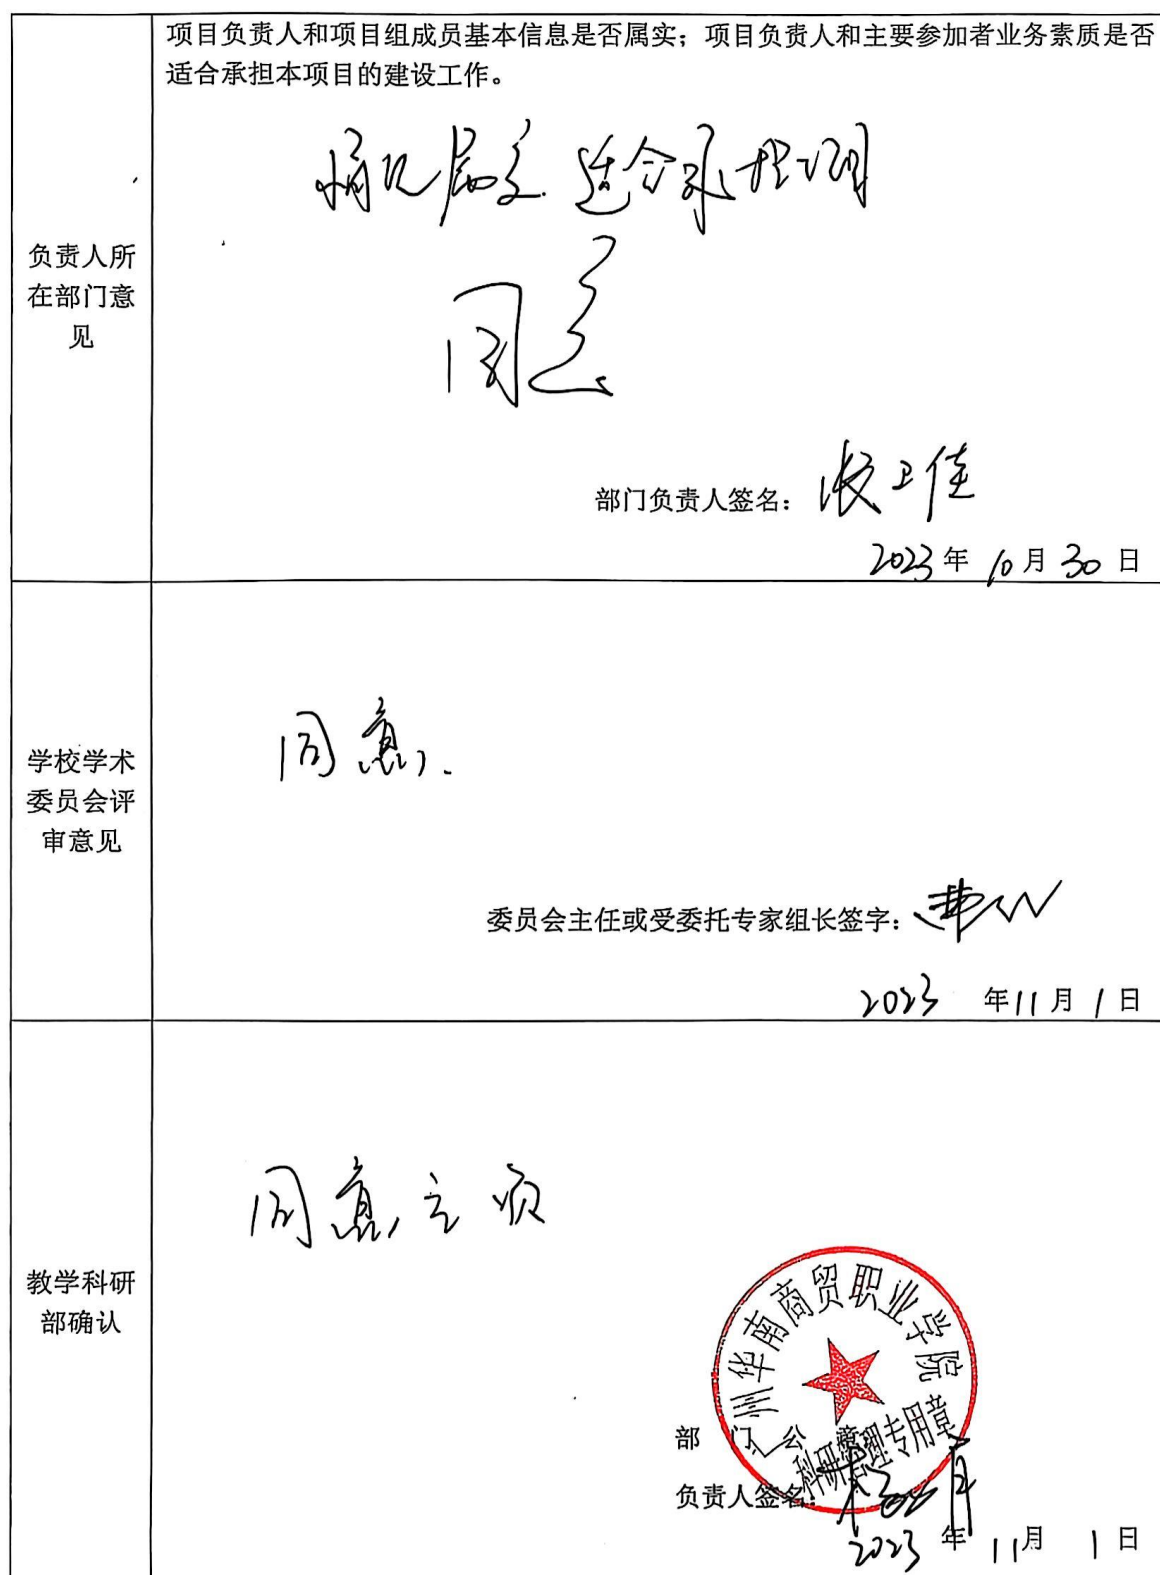 项目负责人和项目组成员基本信息是否属实；项目负责人和主要参加者业务素质是否
适合承担本项目的建设工作。
情况属实 适合承担
同意
负责人所
在部门意
见
部门负责人签名：张卫佳
2023年10月30日
学校学术
委员会评
审意见
同意.
委员会主任或受委托专家组长签字：
2023 年11月1日
教学科研
部确认
同意立项
广州华南商贸职业学院
科研管理专用章
部 门 公 章
负责人签名：
2023 年 11月 1日